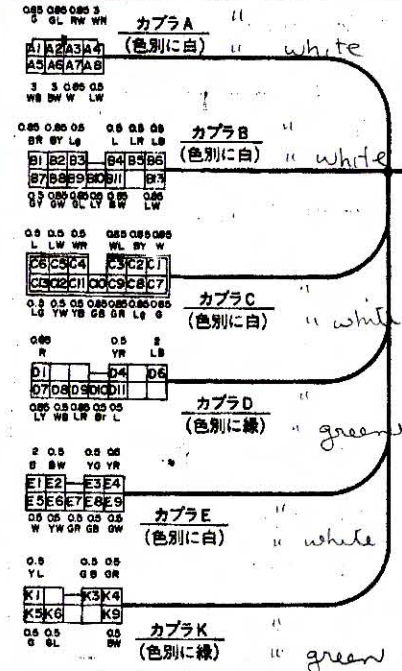 0.85 0.85 0.85 3
G GL RW WR
A1 A2 A3 A4
A5 A6 A7 A8
3 3 0.85 0.5
WB BW W LW
カプラA
(色別に白)
" white
0.85 0.85 0.5 0.5 0.5 0.5
BR BY Lg L LR LB
B1 B2 B3 B4 B5 B6
B7 B8 B9 B10 B11 B13
0.5 3 0.85 0.5 0.85 0.85
GY GW GL LY BW LW
カプラB
(色別に白)
"
" white
0.5 0.5 0.5 0.85 0.85 0.85
L LW WR WL BY W
C6 C5 C4 C3 C2 C1
C13 C12 C11 C10 C9 C8 C7
0.5 0.5 0.5 0.85 0.85 0.85 0.85
LG YW YB GB GR Lg G
カプラC
(色別に白)
"
" white
0.85 0.5 2
R YR LB
D1 D4 D6
D7 D8 D9 D10 D11
0.85 0.5 0.85 0.5 0.5
LY WB LR Br L
カプラD
(色別に緑)
"
" green
2 0.5 0.5 0.5
B BW YG YR
E1 E2 E3 E4
E5 E6 E7 E8 E9
0.5 0.5 0.5 0.5 0.5
W YW GR GB GW
カプラE
(色別に白)
"
" white
0.5 0.5 0.5
YL GB GR
K1 K3 K4
K5 K6 K9
0.5 0.5 0.5
G GL BW
カプラK
(色別に緑)
"
" green